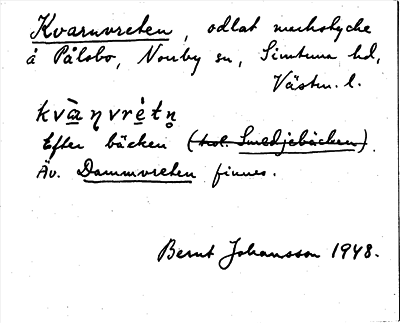 Kvarnvreten, odlat markstycke
å Pålsbo, Nor̄by sn, Simtuna hd,
Västm. l.
kvà̱ɳvrè̱tn̥
Efter bäcken (trol. Smedjebäcken).
Äv. Dammvreten finnes.
Bernt Johansson 1948.